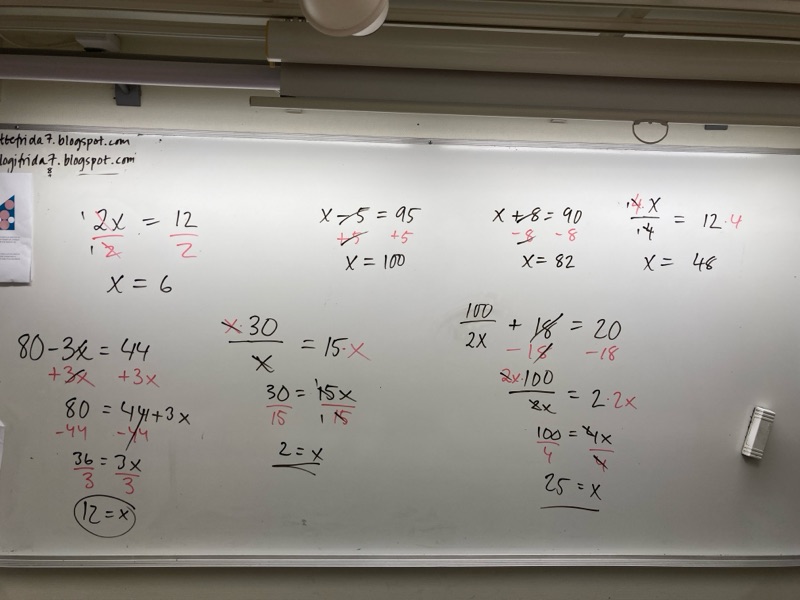 ttefrida7.blogspot.com
logifrida7.blogspot.com
8
1 2x/1 2 = 12/2
x = 6
x - 5 = 95
+5 +5
x = 100
x + 8 = 90
-8 -8
x = 82
1 4·x/1 4 = 12·4
x = 48
80 - 3x = 44
+3x +3x
80 = 44 + 3x
-44 -44
36/3 = 3x/3
12 = x
x·30/x = 15·x
30/15 = 1 15x/1 15
2 = x
100/2x + 18 = 20
-18 -18
2x·100/2x = 2·2x
100/4 = 4x/4
25 = x